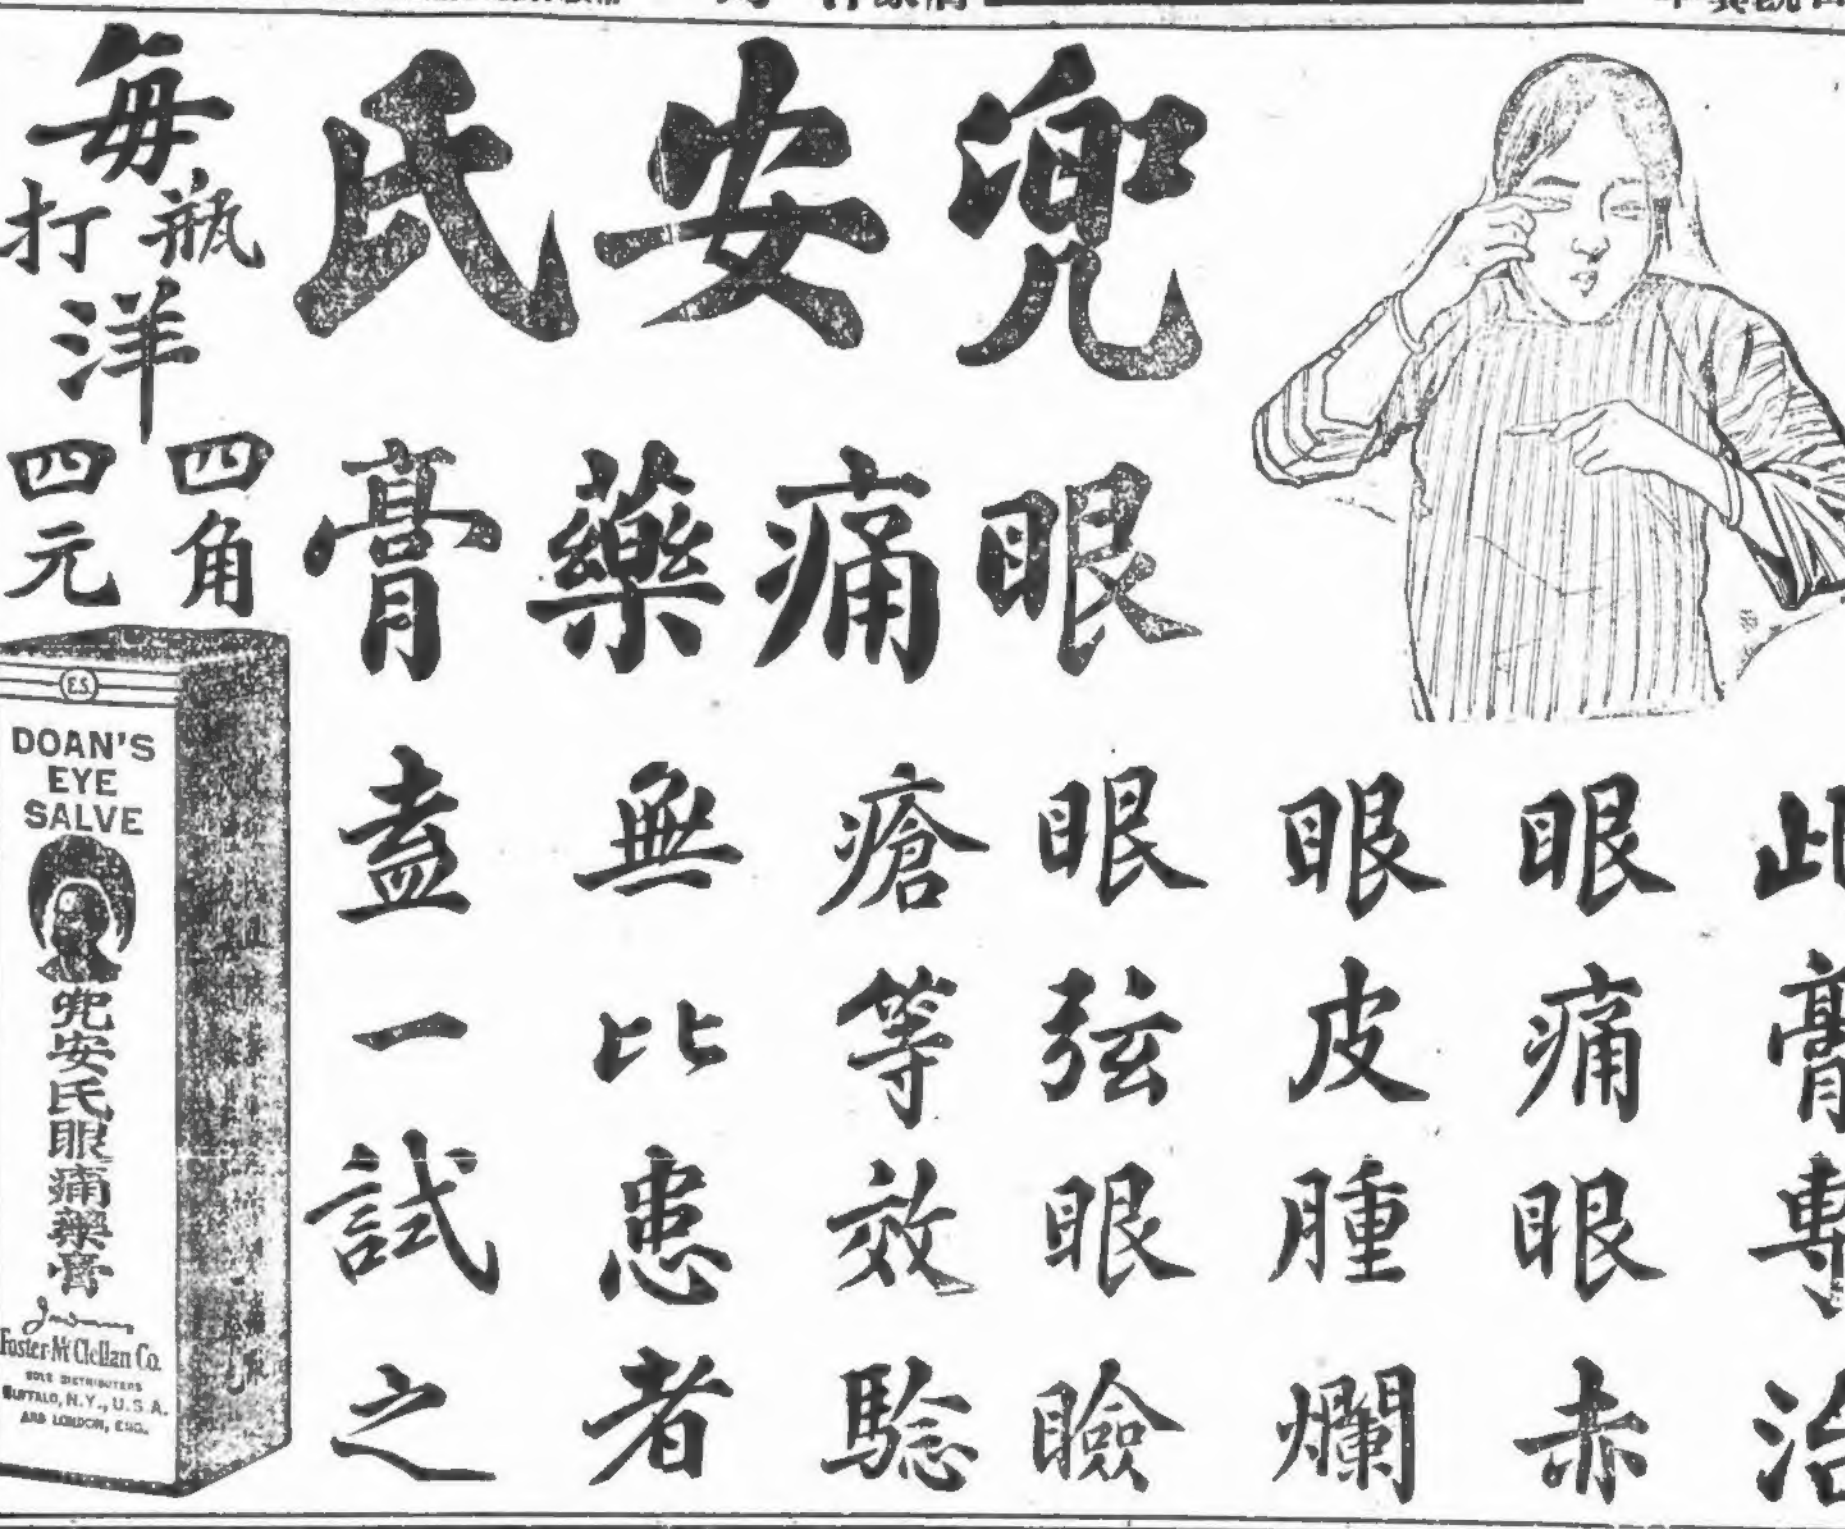 兜安氏
眼痛藥膏
此膏專治
眼痛眼赤
眼皮腫爛
眼弦眼瞼
瘡等效騐
無比患者
盍一試之
每
瓶打
洋
四角
四元
E.S.
DOAN'S
EYE
SALVE
兜安氏眼痛藥膏
Foster-McClellan Co.
SOLE DISTRIBUTERS
BUFFALO, N.Y., U.S.A.
AND LONDON, ENG.